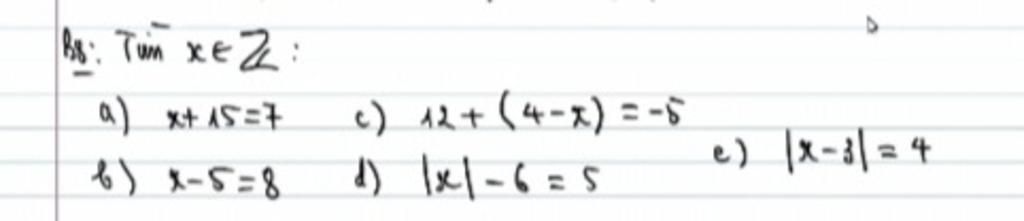 B8: Tìm x ∈ ℤ :
a) x + 15 = 7 c) 12 + (4 - x) = -5
e) |x - 3| = 4
b) x - 5 = 8 d) |x| - 6 = 5